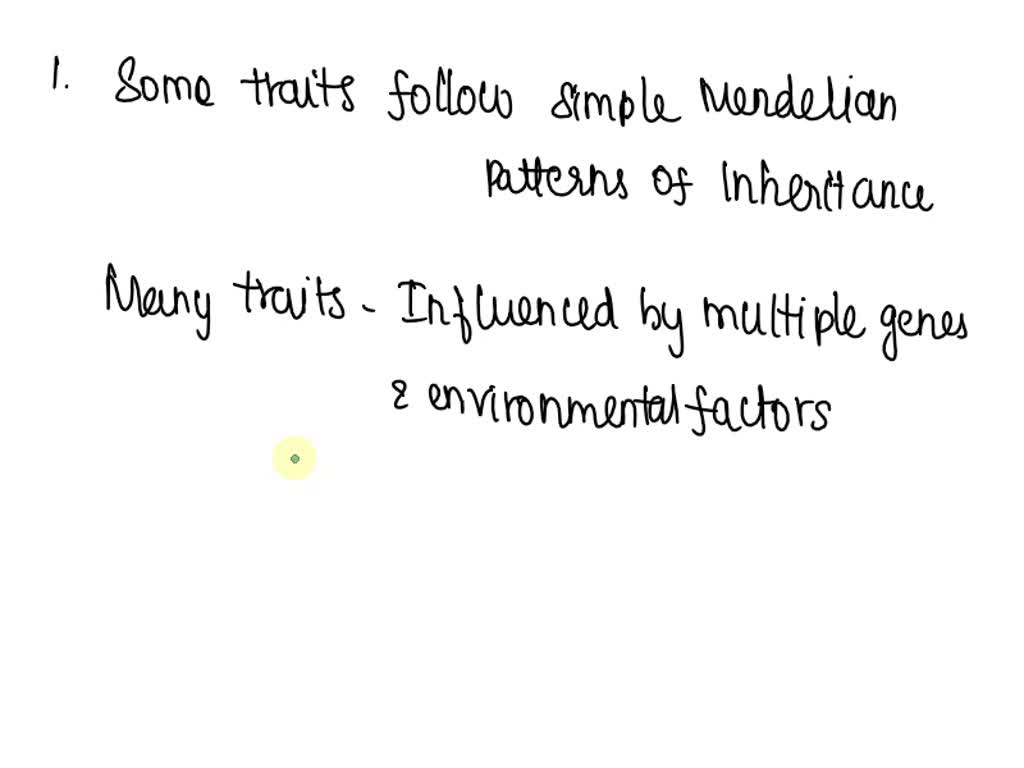 1. Some traits follow simple Mendelian
Patterns of Inheritance
Many traits - Influenced by multiple genes
& environmental factors